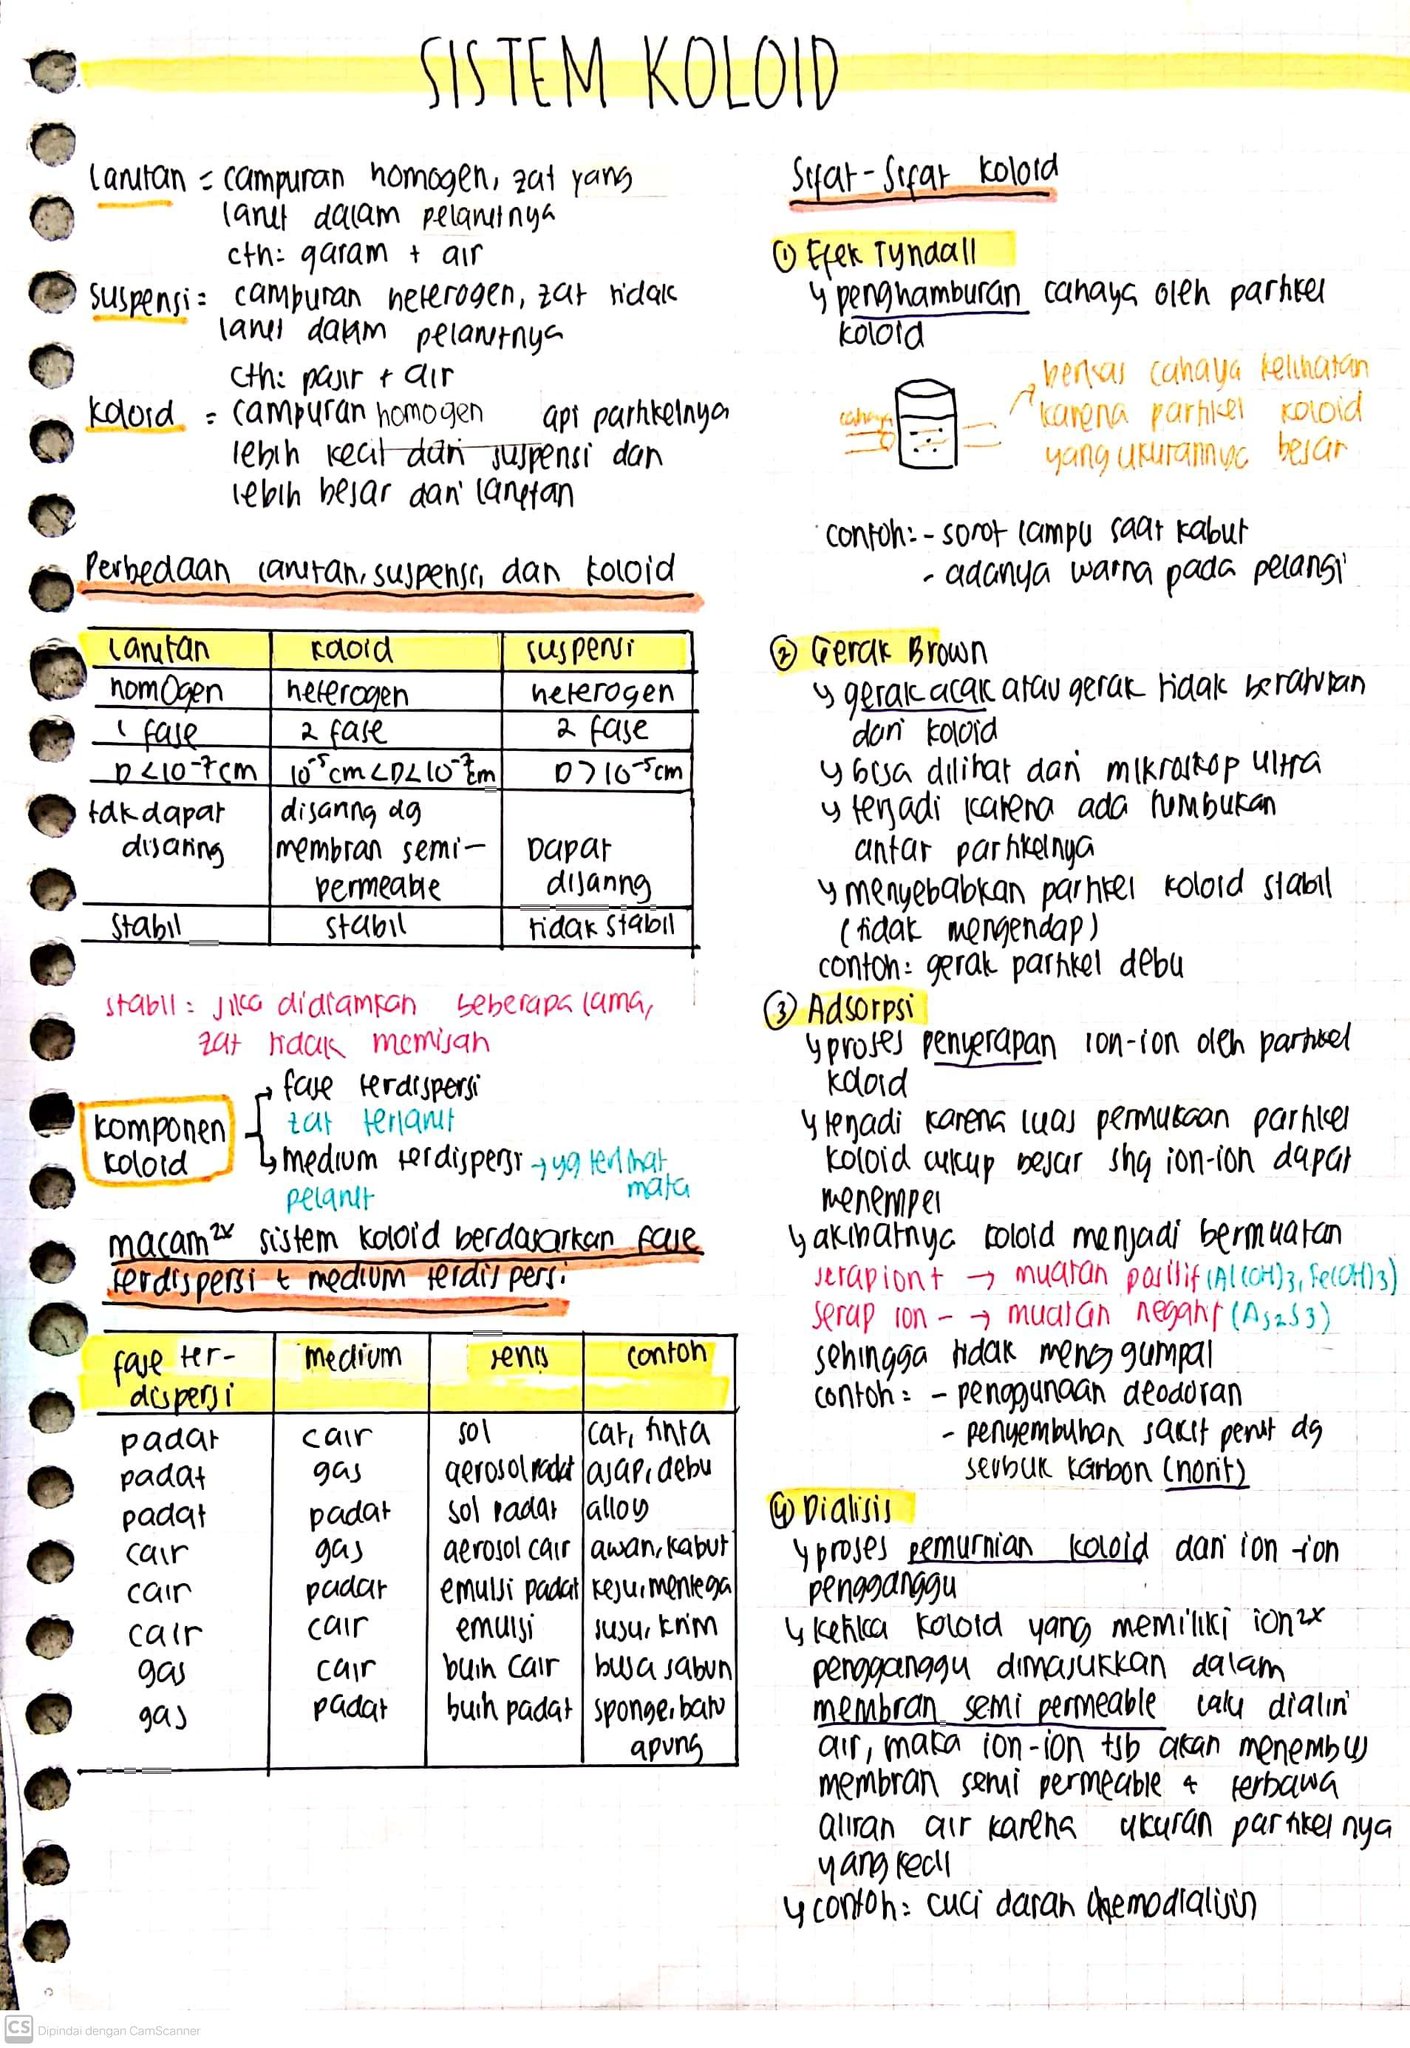 SISTEM KOLOID
larutan = campuran homogen, zat yang
larut dalam pelarutnya
cth: garam + air
suspensi = campuran heterogen, zat tidak
larut dalam pelarutnya
cth: pasir + air
koloid = campuran homogen api partikelnya
lebih kecil dari suspensi dan
lebih besar dari larutan
Perbedaan larutan, suspensi, dan koloid
larutan koloid suspensi
homogen heterogen heterogen
1 fase 2 fase 2 fase
D < 10⁻⁷ cm 10⁻⁵ cm < D < 10⁻⁷ cm D > 10⁻⁵ cm
tdk dapat disaring dg
disaring membran semi- Dapat
permeable disaring
stabil stabil tidak stabil
stabil : jika didiamkan beberapa lama,
zat tidak memisah
komponen koloid
fase terdispersi
zat terlarut
medium terdispersi → yg terlihat mata
pelarut
macam²x sistem koloid berdasarkan fase
terdispersi + medium terdispersi
fase ter- medium jenis contoh
dispersi
padat cair sol cat, tinta
padat gas aerosol padat asap, debu
padat padat sol padat alloy
cair gas aerosol cair awan, kabut
cair padat emulsi padat keju, mentega
cair cair emulsi susu, krim
gas cair buih cair busa sabun
gas padat buih padat sponge, batu
apung
Sifat-Sifat koloid
① Efek Tyndall
↳ penghamburan cahaya oleh partikel
koloid
cahaya
berkas cahaya kelihatan
karena partikel koloid
yang ukurannya besar
contoh: - sorot lampu saat kabut
- adanya warna pada pelangi
② Gerak Brown
↳ gerak acak atau gerak tidak beraturan
dari koloid
↳ bisa dilihat dari mikroskop ultra
↳ terjadi karena ada tumbukan
antar partikelnya
↳ menyebabkan partikel koloid stabil
(tidak mengendap)
contoh: gerak partikel debu
③ Adsorpsi
↳ proses penyerapan ion-ion oleh partikel
koloid
↳ terjadi karena luas permukaan partikel
koloid cukup besar shg ion-ion dapat
menempel
↳ akibatnya koloid menjadi bermuatan
serap ion + → muatan positif (Al(OH)3, Fe(OH)3)
serap ion - → muatan negatif (As2S3)
sehingga tidak menggumpal
contoh: - penggunaan deodoran
- penyembuhan sakit perut dg
serbuk karbon (norit)
④ Dialisis
↳ proses pemurnian koloid dari ion-ion
pengganggu
↳ ketika koloid yang memiliki ion²x
pengganggu dimasukkan dalam
membran semi permeable lalu dialiri
air, maka ion-ion tsb akan menembus
membran semi permeable + terbawa
aliran air karena ukuran partikelnya
yang kecil
↳ contoh: cuci darah
CS Dipindai dengan CamScanner